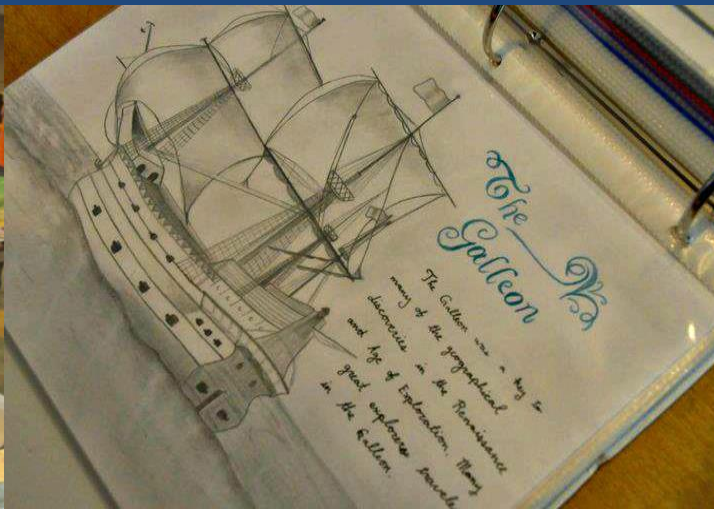 The
Galleon
The Galleon was a key to
many of the geographical
discoveries in the Renaissance
and Age of Exploration. Many
great explorers travele
in the Galleon.